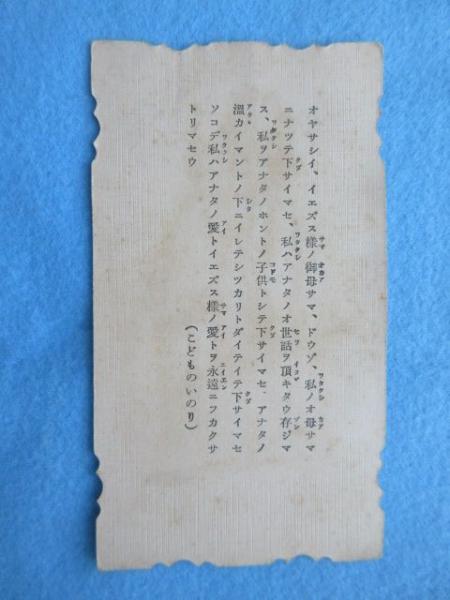 オヤサシイ、イエズス様ノ御母サマ、ドウゾ、私ノオ母サマ
ニナツテ下サイマセ、私ハアナタノオ世話ヲ頂キタウ存ジマ
ス、私ヲアナタノホントノ子供トシテ下サイマセ、アナタノ
溫カイマントノ下ニイレテシツカリトダイテイテ下サイマセ
ソコデ私ハアナタノ愛トイエズス様ノ愛トヲ永遠ニフカクサ
トリマセウ
(こどものいのり)